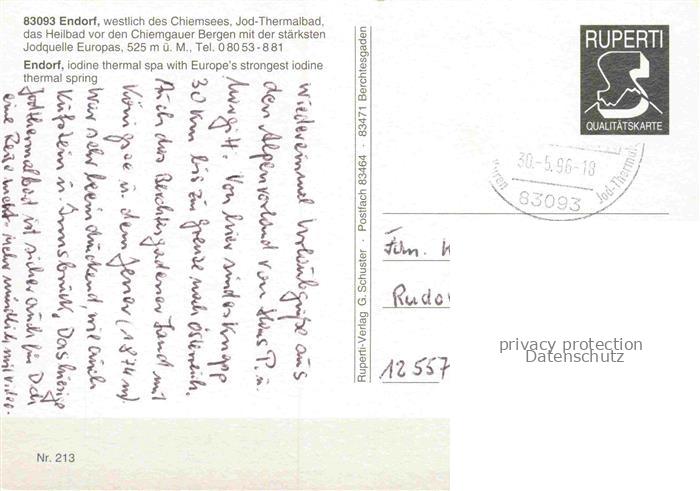 83093 Endorf, westlich des Chiemsees, Jod-Thermalbad,
das Heilbad vor den Chiemgauer Bergen mit der stärksten
Jodquelle Europas, 525 m ü. M., Tel. 0 80 53 - 8 81
Endorf, iodine thermal spa with Europe's strongest iodine
thermal spring
wiedereinmal Urlaubsgrüße aus
dem Alpenvorland von Klaus P. u.
Margitt. Von hier sind es knapp
30 km bis zu grenze nach Österreich.
Auch das Berchtesgadener Land mit
Königsee u. dem Jenner (1874 m)
war sehr beeindruckend, wie auch
Kufstein u. Innsbruck. Das hiesige
Jodthermalbad ist sicher auch für Dich
eine Reise wert. Mehr mündlich mit Video.
Nr. 213
Ruperti-Verlag G. Schuster · Postfach 83464 · 83471 Berchtesgaden
RUPERTI
QUALITÄTSKARTE
30.-5.96-18
83093
Jod-Thermal
Fam. K
Rudo
12557
privacy protection
Datenschutz